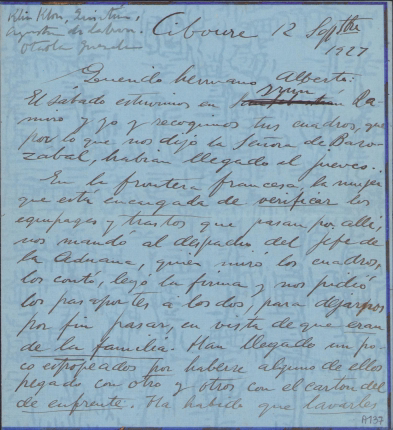 Ciboure 12 Sptbre
1927
Querido hermano Alberto:
El sábado estuvimos en Irun Ra-
miro y yo y recogimos tus cuadros, que
por lo que nos dijo la Señora de Baro-
zabal, habian llegado el jueves.
En la frontera francesa, la mujer
que esta encargada de verificar los
equipages y trastos que pasan por alli,
nos mandó al despacho del Jefe de
la Aduana, quien miró los cuadros,
los contó, leyó la firma y nos pidió
los pasaportes a los dos, para dejarnos
por fin pasar, en vista de que eran
de la familia. Han llegado un po-
co estropeados por haberse alguno de ellos
pegado con otro y otros con el carton del
de enfrente. Ha habido que lavarles
A137